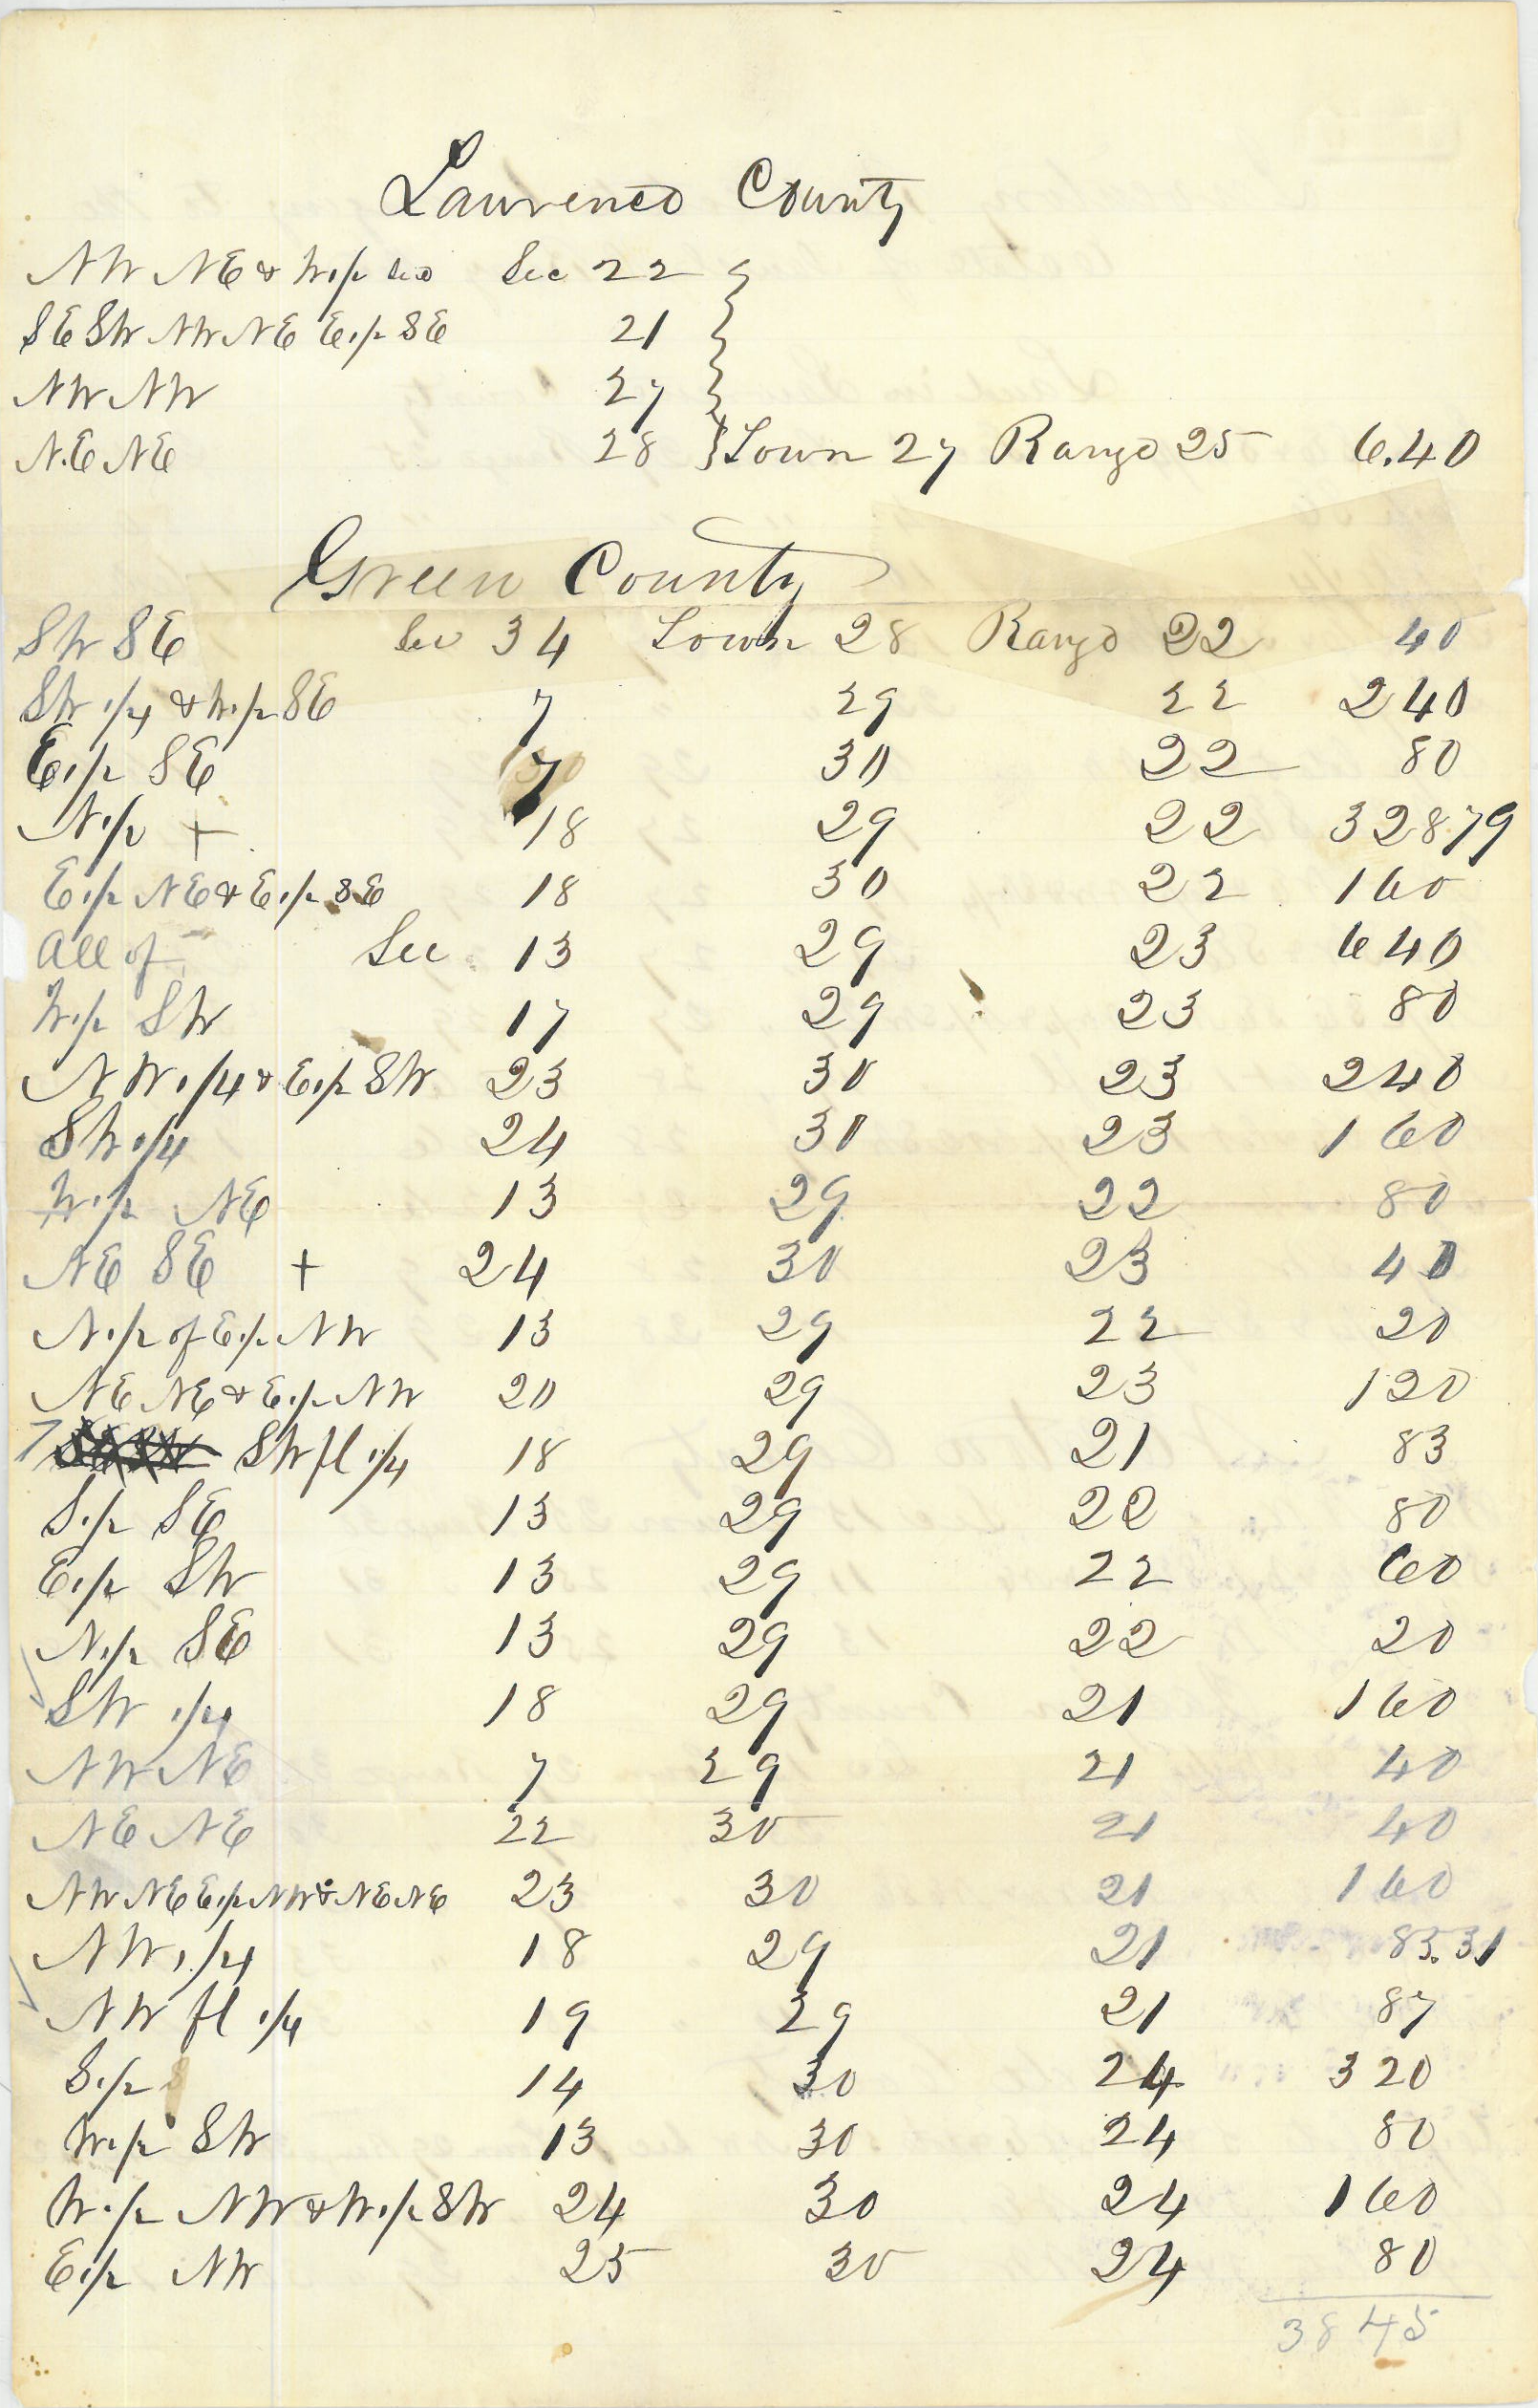 Lawrence County
NW NE & W 1/2 Sec 22 }
SE SW NW NE E 1/2 SE 21 }
NW NW 27 }
N.E NE 28 } Town 27 Range 25 6.40
Green County
SW SE Sec 34 Town 28 Range 22 40
SW 1/4 & W 1/2 SE 7 29 22 240
E 1/2 SE 7 30 22 80
N 1/2 + 18 29 22 328 79
E 1/2 NE & E 1/2 SE 18 30 22 160
All of Sec 13 29 23 640
W 1/2 SW 17 29 23 80
NW 1/4 & E 1/2 SW 23 30 23 240
SW 1/4 24 30 23 160
W 1/2 NE 13 29 22 80
NE SE + 24 30 23 40
N 1/2 of E 1/2 NW 13 29 22 20
NE NE & E 1/2 NW 20 29 23 120
SW fl 1/4 18 29 21 83
S 1/2 SE 13 29 22 80
E 1/2 SW 13 29 22 60
N 1/2 SE 13 29 22 20
SW 1/4 18 29 21 160
NW NE 7 29 21 40
NE NE 22 30 21 40
NW NE E 1/2 NW & NE NE 23 30 21 160
NW 1/4 18 29 21 83.31
NW fl 1/4 19 29 21 87
S 1/2 14 30 24 320
W 1/2 SW 13 30 24 80
W 1/2 NW & W 1/2 SW 24 30 24 160
E 1/2 NW 25 30 24 80
3845